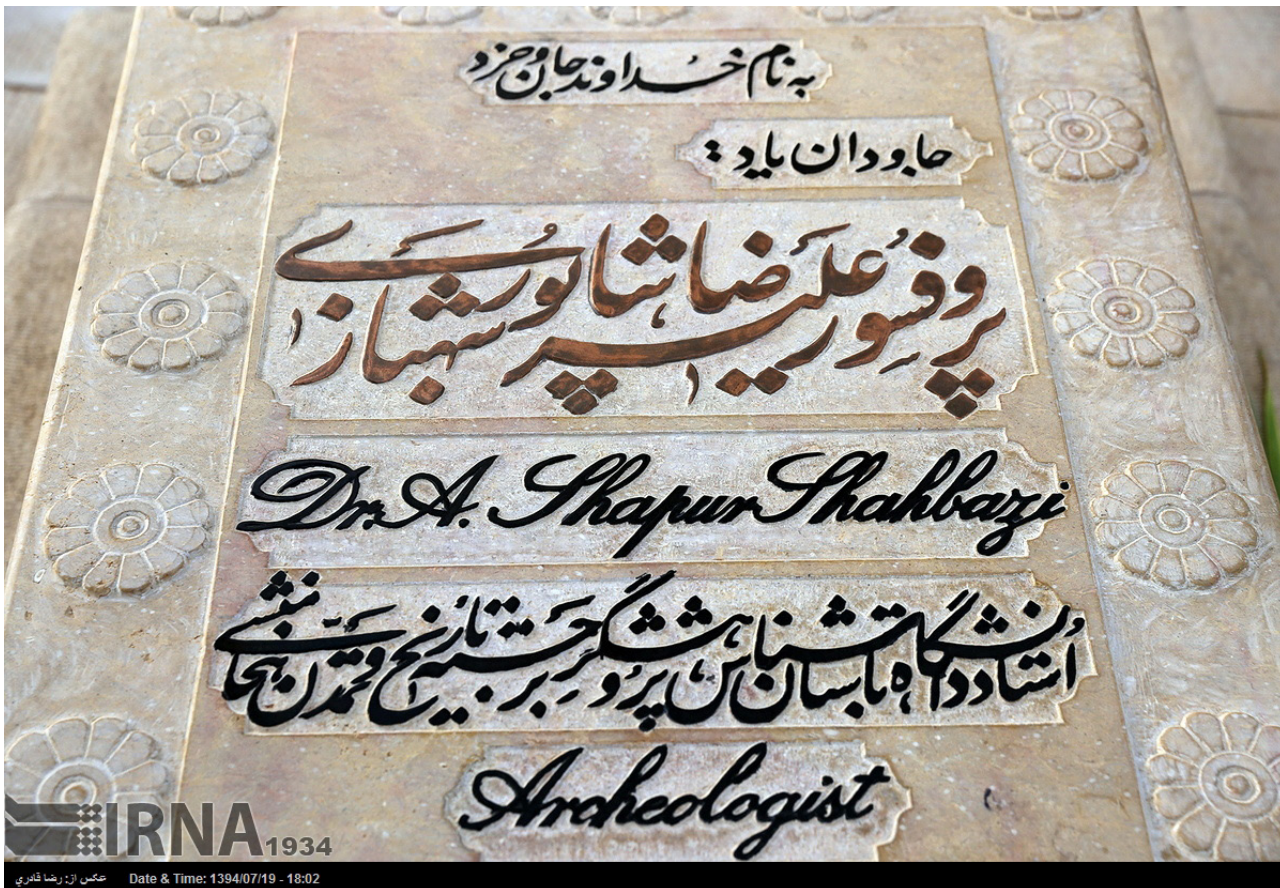 به نام خداوند جان و خرد
جاودان یاد :
پروفسور علیرضا شاپور شهبازی
Dr. A. Shapur Shahbazi
استاد دانشگاه باستان شناس پژوهشگر برجسته تاریخ و تمدن هخامنشی
Archeologist
IRNA 1934
عکس از: رضا قادري Date & Time: 1394/07/19 - 18:02